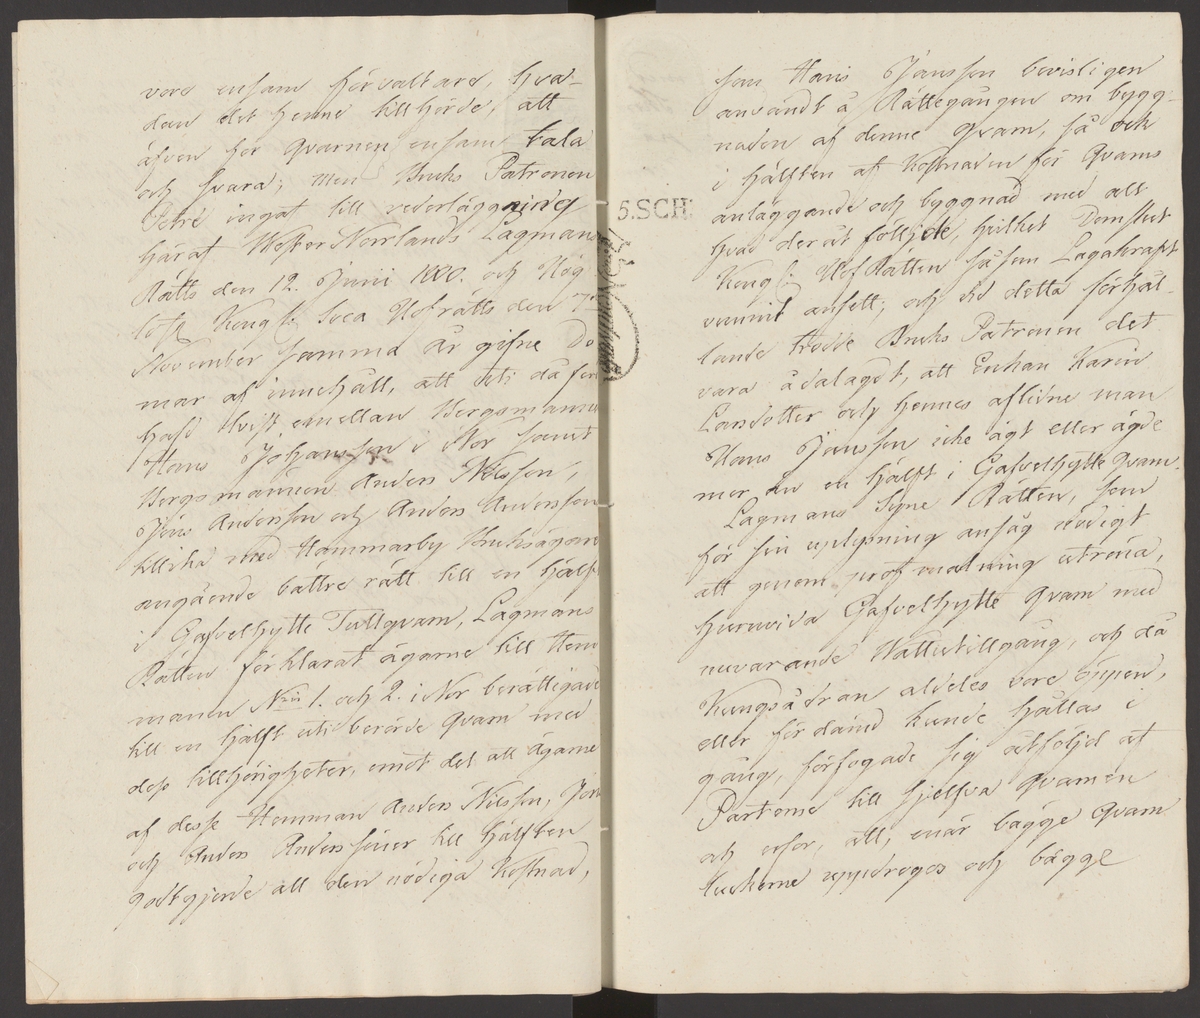 vore ensam förvaltare, hva-
dan det henne tillhörde, att
äfven för Qvarnen ensam tala
och svara; men Bruks Patronen
Petré ingat till vederläggning
häraf Westor Norrlands Lagmans
Rätts den 12. Junii 1800. och Hög
lofl. Kongl: Svea Hofrätts den 7
November samma år gifne Do
mar af innehåll, att uti då före
hafd tvist emellan Bergsmannen
Hans Johansson i Nor samt
Bergsmännen Anders Nilsson,
Jöns Andersson och Anders Andersson
tillika med Hammarby Bruksägare
angående bättre rätt till en hälft
i Gafvelhytte Tullqvarn, Lagmans
Rätten förklarat ägarne till Hem
manen N:ris 1. och 2. i Nor berättigade
till en hälft uti berörde Qvarn med
dess tillhörigheter, emot det att ägarne
af desse Hemman Anders Nilsson, Jöns
och Anders Anderssöner till hälften
godtgjorde all den nödiga Kostnad,
5.SCH
som Hans Jönsson bevisligen
användt å Rättegången om bygg-
naden af denne Qvarn, så ock
i hälften af Kostnaden för Qvarns
anläggande och byggnad med allt
hvad deråt följde, hvilket Domslut
Kongl: HofRätten såsom Lagakraft
vunnit ansett; och vid detta förhål-
lande trodde Bruks Patronen det
vara ådalagdt, att Enkan Karin
Larsdotter och hennes aflidne man
Hans Jönsson icke ägt eller ägde
mer än en hälft i Gafvelhytte Qvarn.
Lagmans Syne Rätten, som
för sin uplysning ansåg nödigt
att genom profmalning utröna,
huruvida Gafvelhytte Qvarn med
nuvarande Vattutillgång, och då
Kungsådran aldeles vore öppen,
eller fördämd kunde hållas i
gång, förfogade sig åtföljd af
Parterne till sjelfva Qvarnen
och erfor, att, när bägge Qvarn
luckorne uppdrogos och bägge